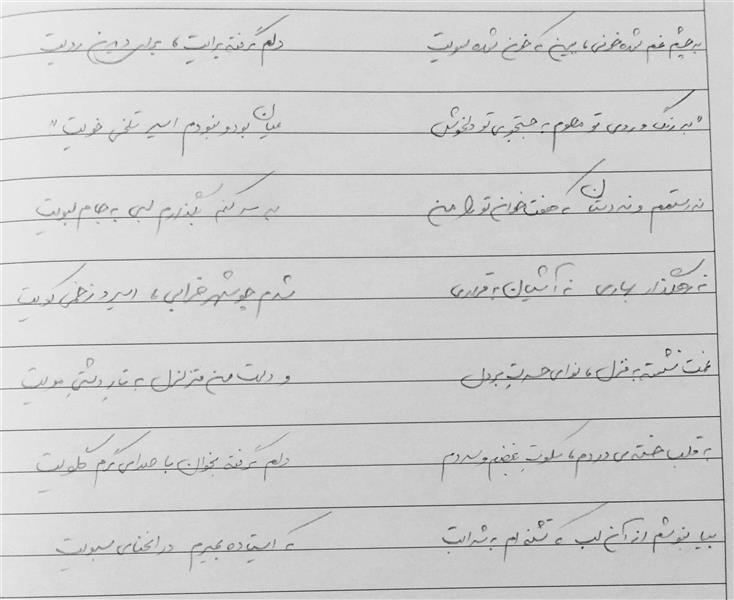 به چشم غم شده خونی، ببین که خون شده سویت دلم گرفته برایت، برای دیدن رویت
"به رنگ و روی تو معلوم به جستجوی تو دلخوش میان بود و نبودم اسیر تلخی خویت"
نه رستمم و نه دستان که هفت‌خوان تو را من به سر کنم بگذارم لبی به جام سبویت
نه رهگذار بهاری نه آشیان به قراری شدم چو شهر خرابی، اسیر و زخمی کویت
غمت نشسته به غزل، نوای حسرت بر دل و دست من متزلزل به تار مشکی مویت
به قلب خسته‌ی دردم، سکوت بغضم و سردم دلم گرفته بخوان با صدای گرم گلویت
بیا بنوشم از آن لب که تشنه‌ام به شرابت که ایستاده بمیرم در انحنای سبویت